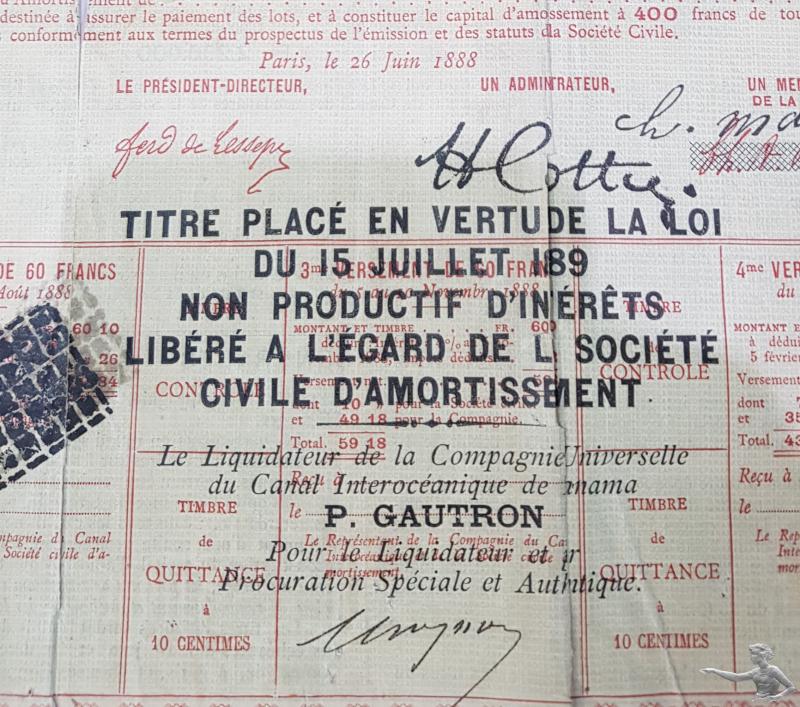 destinée à assurer le paiement des lots, et à constituer le capital d'amossement à 400 francs de tou
conformément aux termes du prospectus de l'émission et des statuts dla Société Civile.
Paris, le 26 Juin 1888
LE PRÉSIDENT-DIRECTEUR,
UN ADMINTRATEUR,
UN MEM
DE LA
ferd de Lesseps
H Cottu
ch. ma
TITRE PLACÉ EN VERTUDE LA LOI
DU 15 JUILLET 189
NON PRODUCTIF D'INÉRÊTS
LIBÉRÉ A L'ÉGARD DE L SOCIÉTÉ
CIVILE D'AMORTISSEMENT
Le Liquidateur de la CompagnieUniverselle
du Canal Interocéanique de nama
P. GAUTRON
Pour le Liquidateur et pr
Procuration Spéciale et Authtique.
DE 60 FRANCS
Août 1888
60 10
26
34
CONTROLE
TIMBRE
de
QUITTANCE
à
10 CENTIMES
3me VERSEMENT DE 60 FRAN
du 5 au 10 Novembre 1888
MONTANT ET TIMBRE FR. 60
Versement
dont 10 pour la Société
et 49 18 pour la Compagnie.
Total. 59 18
Reçu à
le
Le Représentant de la Compagnie du Ca
mortissement
TIMBRE
de
CONTROLE
TIMBRE
de
QUITTANCE
à
10 CENTIMES
4me VERS
du
MONTANT E
à dédui
5 févrie
Versement
dont 7
et 35
Total. 43
Reçu à
le
Le Rep
Inte
mor
mpagnie du Canal
Société civile d'a-